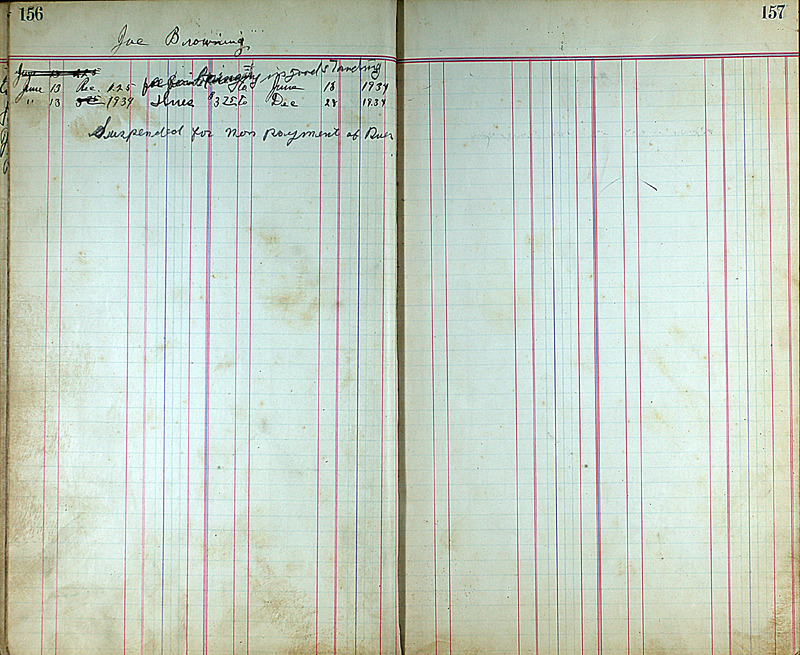 156
157
Joe Browning
June 13 2.25
in good standing
June 13 Rec. 2.25 to June 13 1934
" 13 1934 Dues $3.25 to Dec 28 1934
Suspended for non payment of Dues